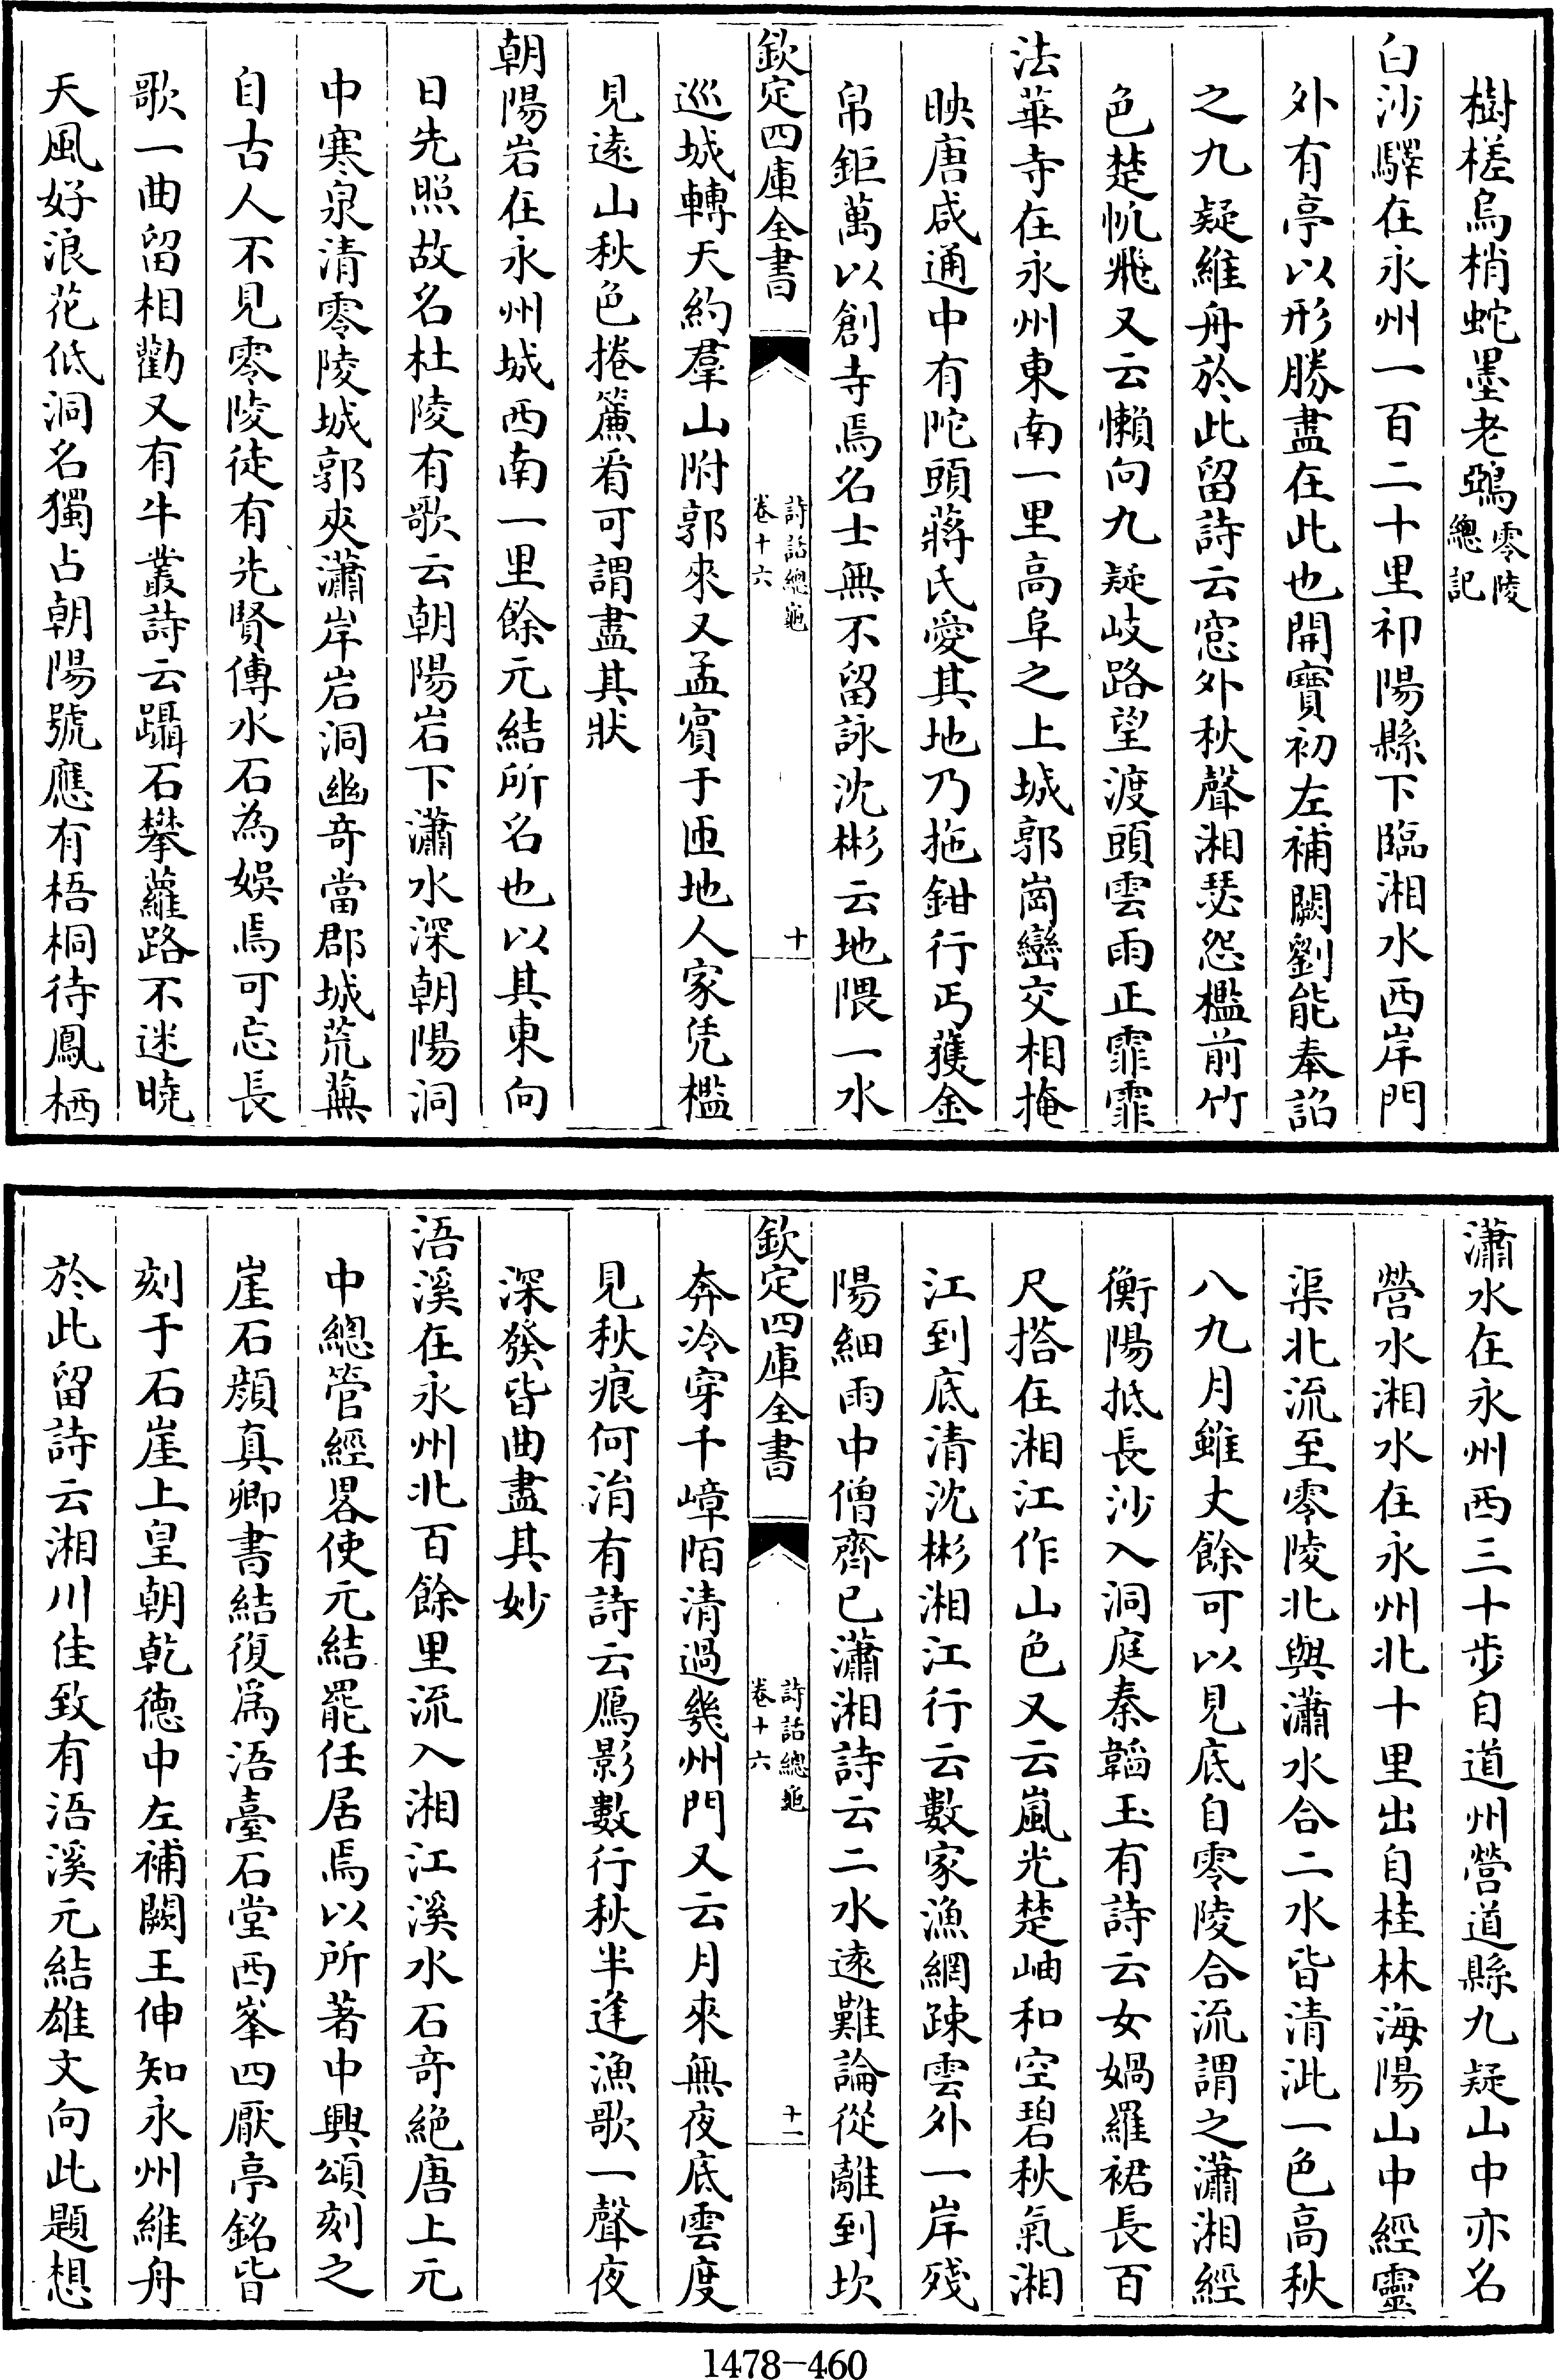 樹槎烏梢蛇墨老鵶零陵總記
白沙驛在永州一百二十里祁陽縣下臨湘水西岸門
外有亭以形勝盡在此也開寶初左補闕劉能奉詔
之九疑維舟於此留詩云窓外秋聲湘瑟怨檻前竹
色楚帆飛又云懶向九疑岐路望渡頭雲雨正霏霏
法華寺在永州東南一里高阜之上城郭崗巒交相掩
映唐咸通中有陀頭蔣氏愛其地乃拖鉗行丐獲金
帛鉅萬以創寺焉名士無不留詠沈彬云地隈一水
欽定四庫全書
詩話總龜
卷十六
十
巡城轉天約羣山附郭來又孟賓于匝地人家凭檻
見遠山秋色捲簾看可謂盡其狀
朝陽岩在永州城西南一里餘元結所名也以其東向
日先照故名杜陵有歌云朝陽岩下瀟水深朝陽洞
中寒泉清零陵城郭夾瀟岸岩洞幽奇當郡城荒蕪
自古人不見零陵徒有先賢傳水石為娛焉可忘長
歌一曲留相勸又有牛叢詩云躡石攀蘿路不迷曉
天風好浪花低洞名獨占朝陽號應有梧桐待鳳栖
瀟水在永州西三十步自道州營道縣九疑山中亦名
營水湘水在永州北十里出自桂林海陽山中經靈
渠北流至零陵北與瀟水合二水皆清泚一色高秋
八九月雖丈餘可以見底自零陵合流謂之瀟湘經
衡陽抵長沙入洞庭秦韜玉有詩云女媧羅裙長百
尺搭在湘江作山色又云嵐光楚岫和空碧秋氣湘
江到底清沈彬湘江行云數家漁網疎雲外一岸殘
陽細雨中僧齊已瀟湘詩云二水遠難論從離到坎
欽定四庫全書
詩話總龜
卷十六
十一
奔冷穿千嶂陌清過幾州門又云月來無夜底雲度
見秋痕何涓有詩云鴈影數行秋半逢漁歌一聲夜
深發皆曲盡其妙
浯溪在永州北百餘里流入湘江溪水石奇絕唐上元
中總管經畧使元結罷任居焉以所著中興頌刻之
崖石顏真卿書結復爲浯臺石堂西峯四厭亭銘皆
刻于石崖上皇朝乾德中左補闕王伸知永州維舟
於此留詩云湘川佳致有浯溪元結雄文向此題想
1478-460